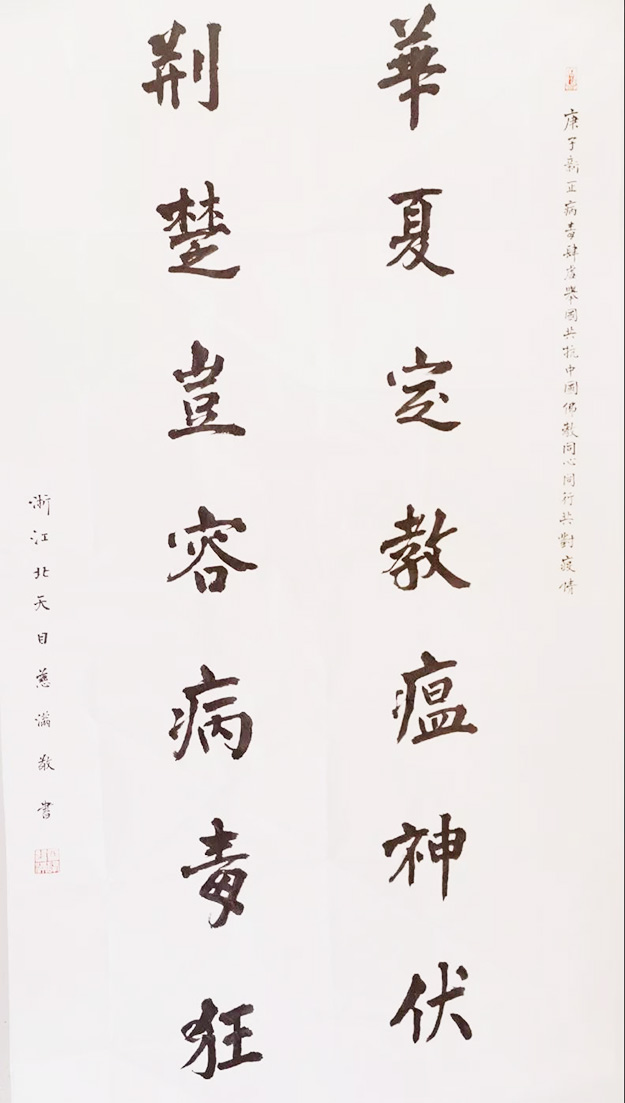 庚子新正病毒肆虐舉國共抗中國佛教同心同行共對疫情
華夏定教瘟神伏
荆楚豈容病毒狂
浙江北天目慈滿敬書